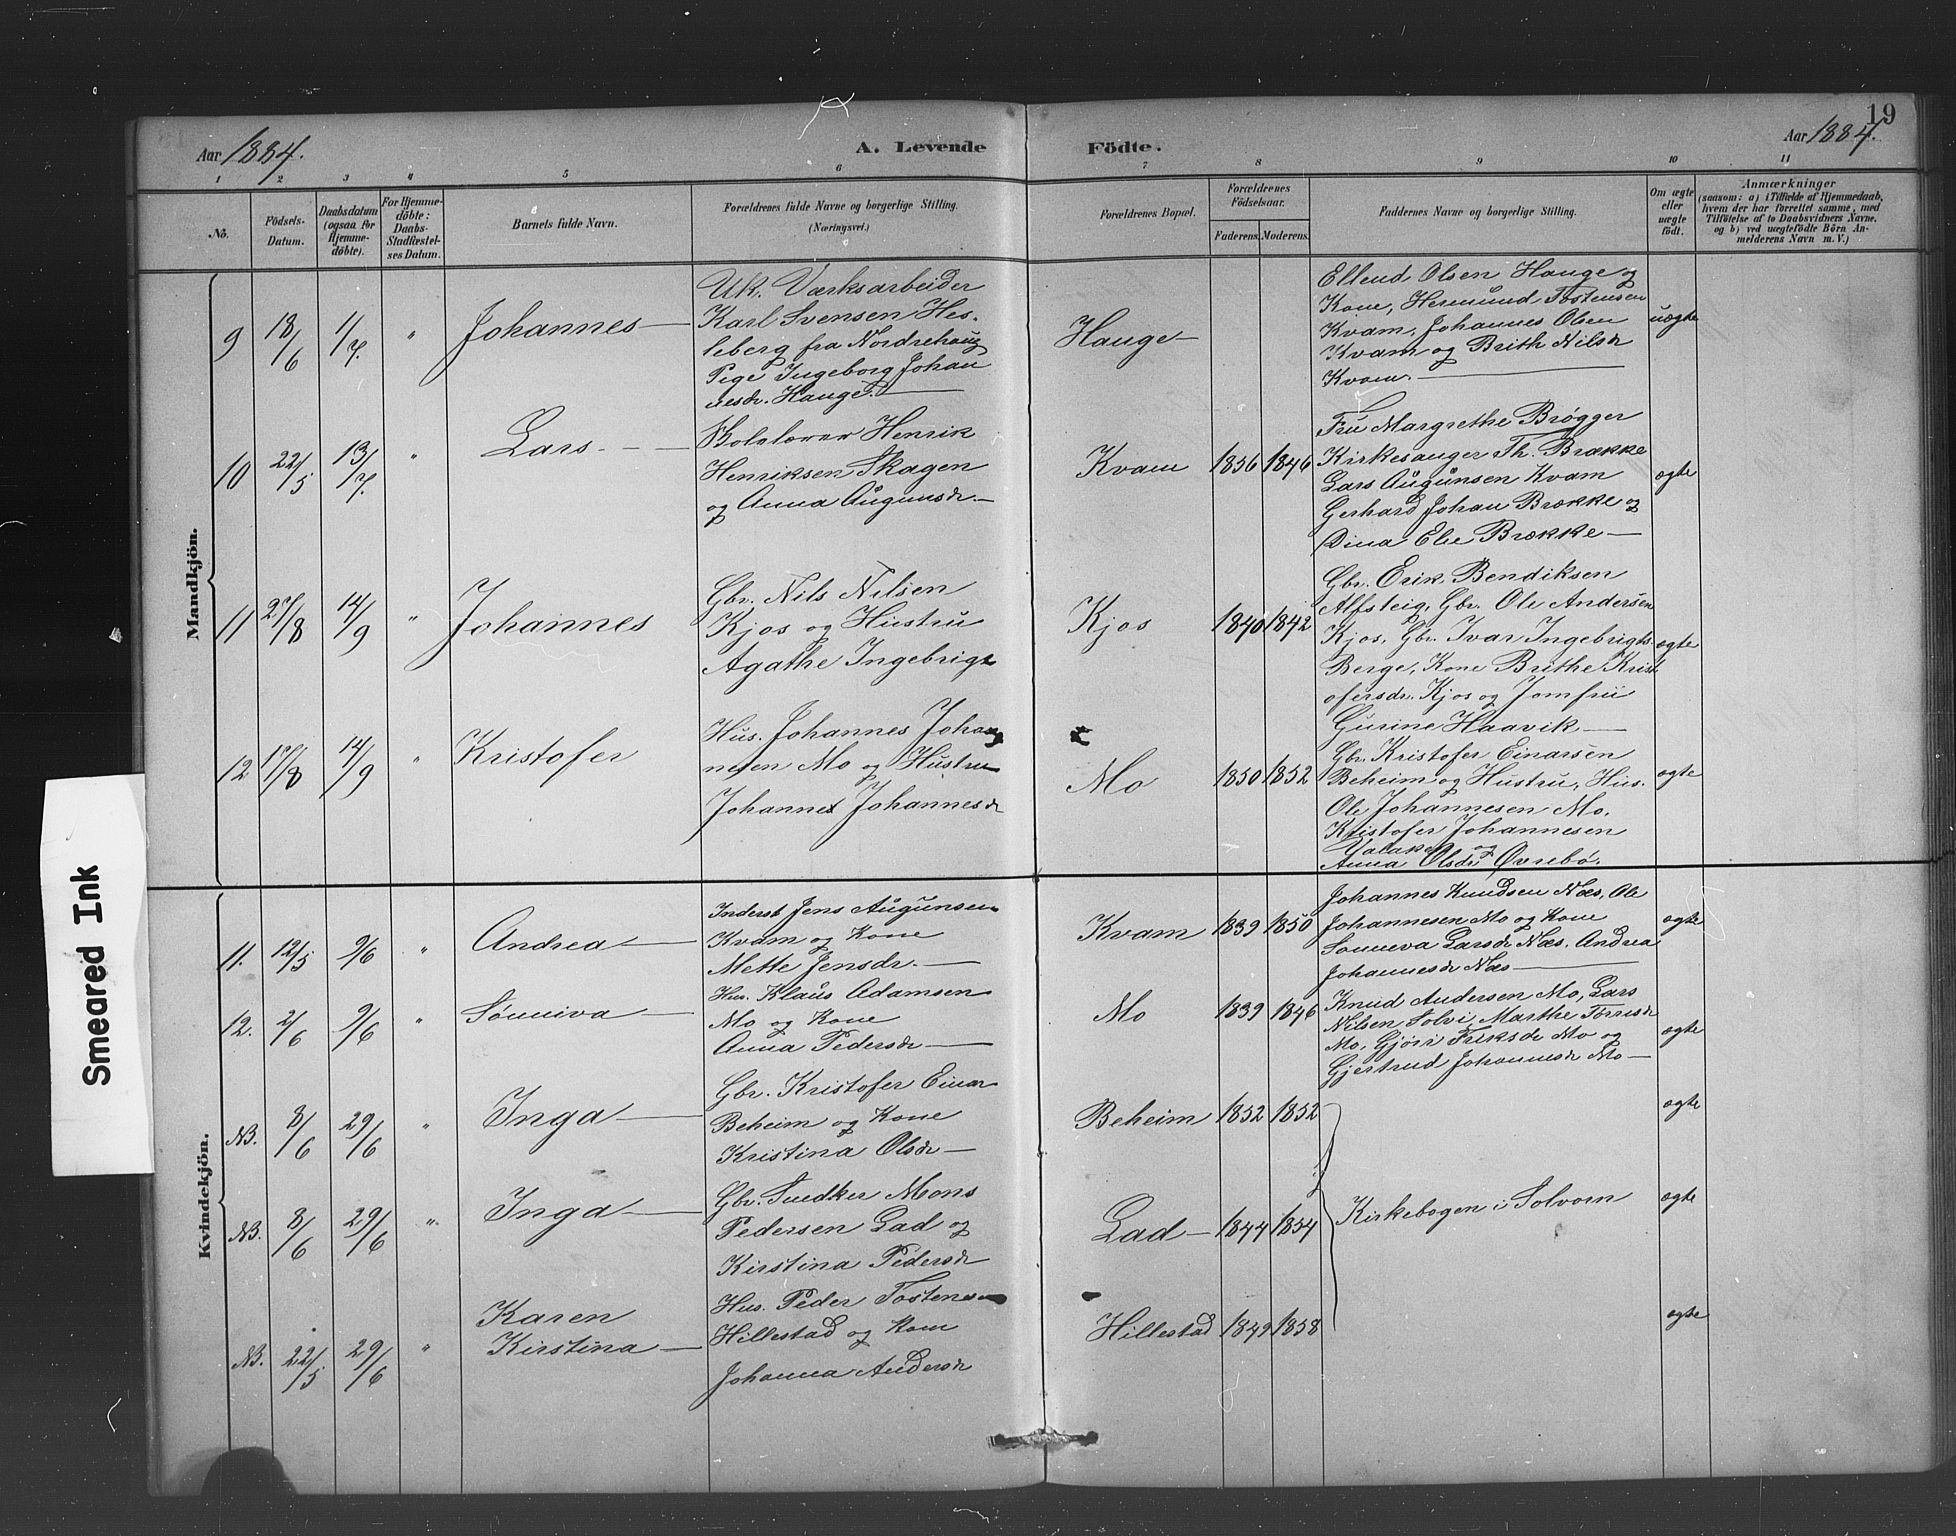 19
Aar 1884.
A. Levende
Födte.
Aar 1884.
1 2 3 4 5 6 7 8 9 10 11
No.
Födsels-
Datum.
Daabsdatum
(ogsaa for
Hjemme-
döbte).
For Hjemme-
döbte:
Daabs-
Stadfæstel-
ses Datum.
Barnets fulde Navn.
Forældrenes fulde Navne og borgerlige Stilling.
(Næringsvei.)
Forældrenes Bopæl.
Forældrenes
Födselsaar.
Faderens. Moderens.
Faddernes Navne og borgerlige Stilling.
Om ægte
eller
uægte
födt.
Anmærkninger
(saasom: a) i Tilfælde af Hjemmedaab,
hvem der har forrettet samme, med
Tilföielse af to Daabsvidners Navne.
og b) ved uægtefödte Börn An-
melderens Navn m. V.)
Mandkjön.
9 18/6 1/7. " Johannes
Uk. Værksarbeider
Karl Svensen Hes-
leberg fra Nordrehaug
Pige Ingeborg Johan
nesdr. Hauge.
Hauge
Ellend Olsen Hauge og
Kone, Hermund Tostensen
Kvam, Johannes Olsen
Kvam og Brith Nilsdr
Kvam.
uægte
10 22/5 13/7. " Lars
Skolelærer Henrik
Henriksen Skagen
og Anna Augunsdr.
Kvam 1856 1846
Fru Margrethe Brøgger
Kirkesanger Th. Brække
Lars Augunsen Kvam
Gerhard Johan Brække og
Dina Elie Brække
ægte
11 27/8 14/9 " Johannes
Gbr. Nils Nilsen
Kjos og Hustru
Agathe Ingebrigt
Kjos 1840 1842
Gbr. Erik Bendiksen
Alfsteig, Gbr. Ole Andersen
Kjos, Gbr. Ivar Ingebrigts
Berge, Kone Brithe Krist
ofersdr. Kjos og Jomfru
Gurine Haavik
ægte
12 17/8 14/9 " Kristofer
Hus. Johannes Johan
nesen Mo og Hustru
Johanne Johannesdr
Mo 1850 1852
Gbr. Kristofer Einarsen
Beheim og Hustru, Hus.
Ole Johannesen Mo.
Kristofer Johannesen
Yalake og
Anna Olsdr Øvrebø.
ægte
Kvindekjön.
11. 12/5 9/6 " Andrea
Inderst Jens Augunsen
Kvam og Kone
Mette Jensdr.
Kvam 1839 1850
Johannes Knudsen Næs, Ole
Johannesen Mo og Kone
Sønneva Larsdr Næs, Andrea
Johannesdr Næs
ægte
12. 2/6 9/6 " Sønniva
Hus. Klaus Adamsen
Mo og Kone
Anna Pedersdr
Mo 1839 1846
Knud Andersen Mo, Lars
Nilsen Solvi, Marthe Torrisdr
Mo, Gjøri Eriksdr Mo og
Gjertrud Johannesdr Mo
ægte
NB. 8/6 29/6 " Inga
Gbr. Kristofer Einar
Beheim og Kone
Kristina Olsdr
Beheim 1852 1852
ægte
NB. 8/6 29/6 " Inga
Gbr. Smedker Mons
Pedersen Lad og
Kirstina Pedersdr
Lad 1844 1854
Kirkebogen i Solvorn
ægte
NB. 22/5 29/6 " Karen
Kirstina
Hus. Peder Tostensen
Hillestad og Kone
Johanna Andersdr
Hillestad 1849 1858
ægte
Smeared Ink